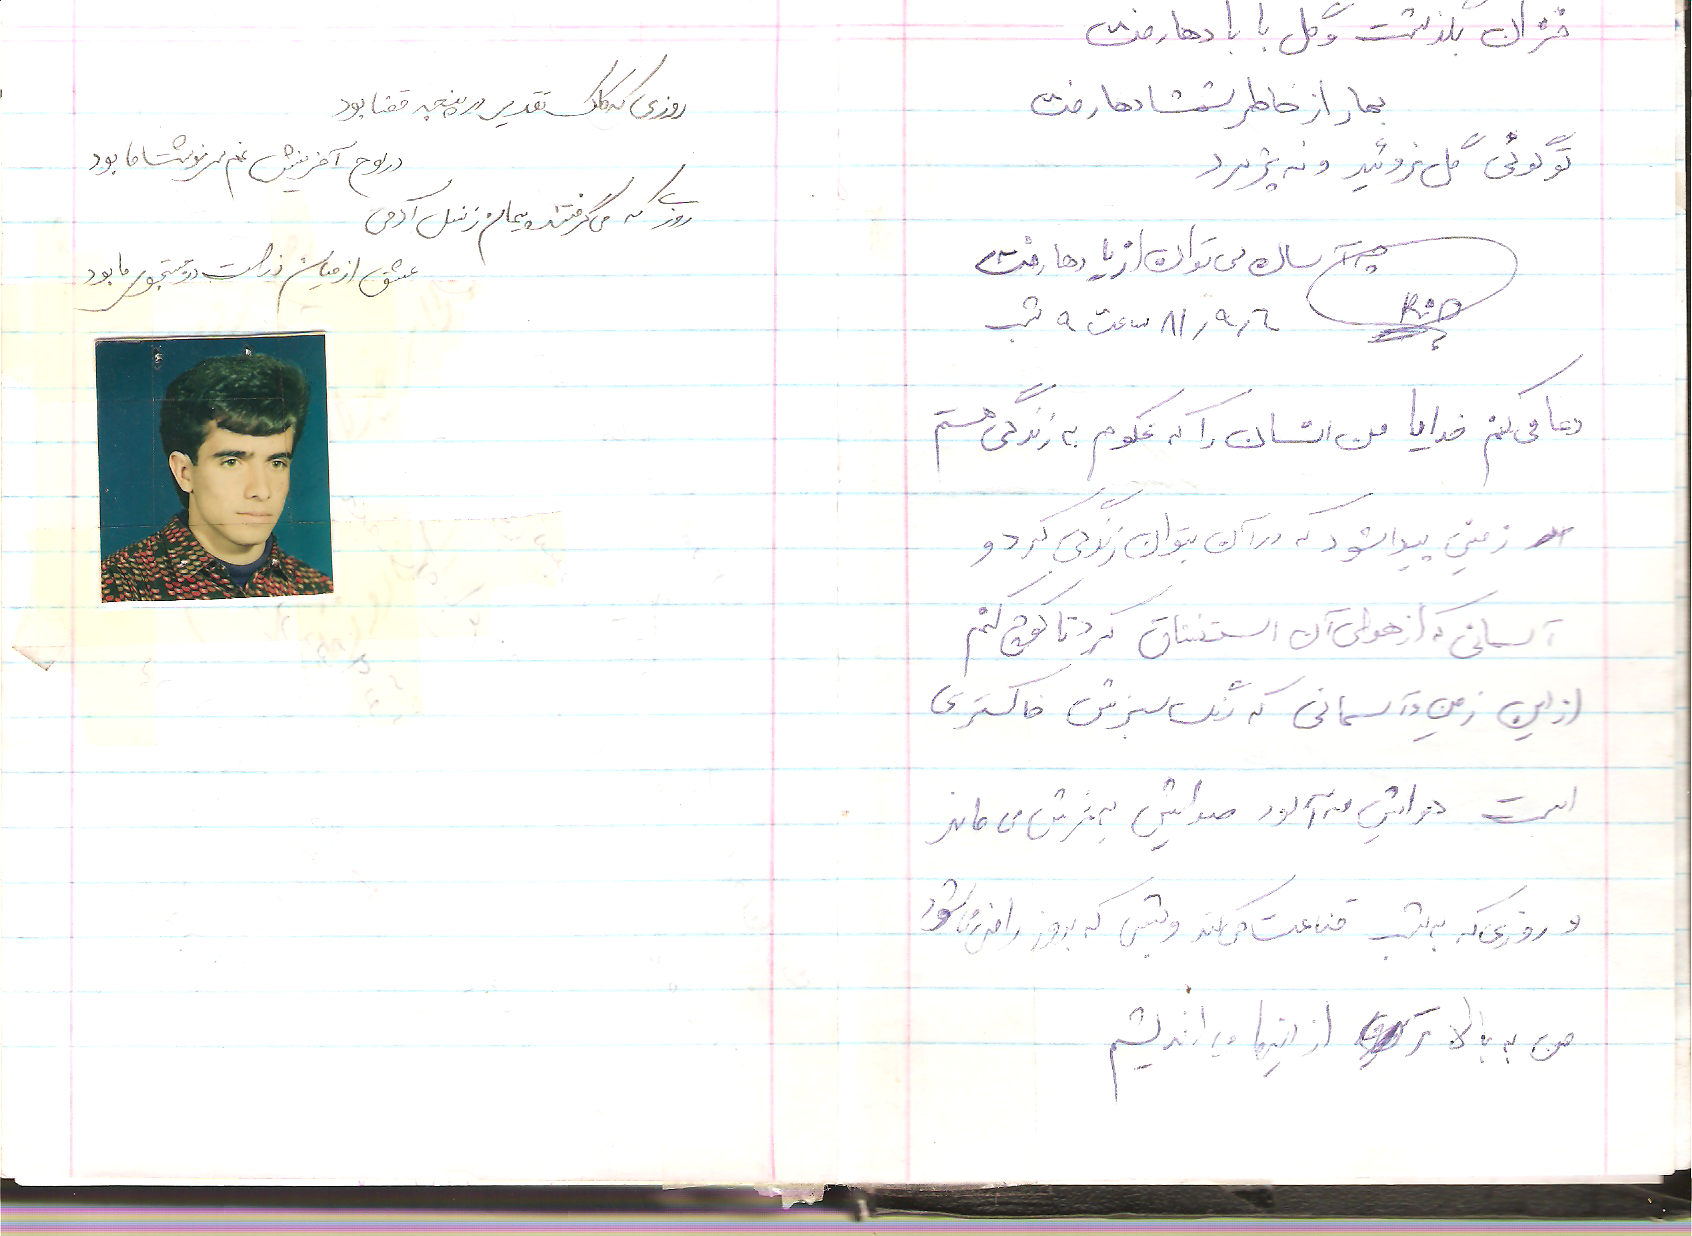 خزان بگذشت و گل با بادها رفت
بهار از خاطر شمشادها رفت
تو گوئی گل نروئید و نه پژمرد
چه آسان می توان از یادها رفت
۸۱/۹/۶ ساعت ۹ شب
دعا می کنم خدایا من انسان را که محکوم به زندگی هستم
زمینی پیدا شود که در آن بتوان زندگی کرد و
آسمانی که از هوای آن استنشاق کرد تا کوچ کنم
از این زمین و آسمانی که رنگ سبزش خاکستری
است هوایش مه آلود صدایش به غرش می ماند
و روزی که به شب قناعت می کند و شبی که به روز راضی
من به بالا تر از اینها می اندیشم
روزی که کلک تقدیر در پنجه قضا بود
در لوح آفرینش غم سرنوشت ما بود
روزی که می گرفتند پیمان ز نسل آدمی
عشق از میان ذرات در جستجوی ما بود